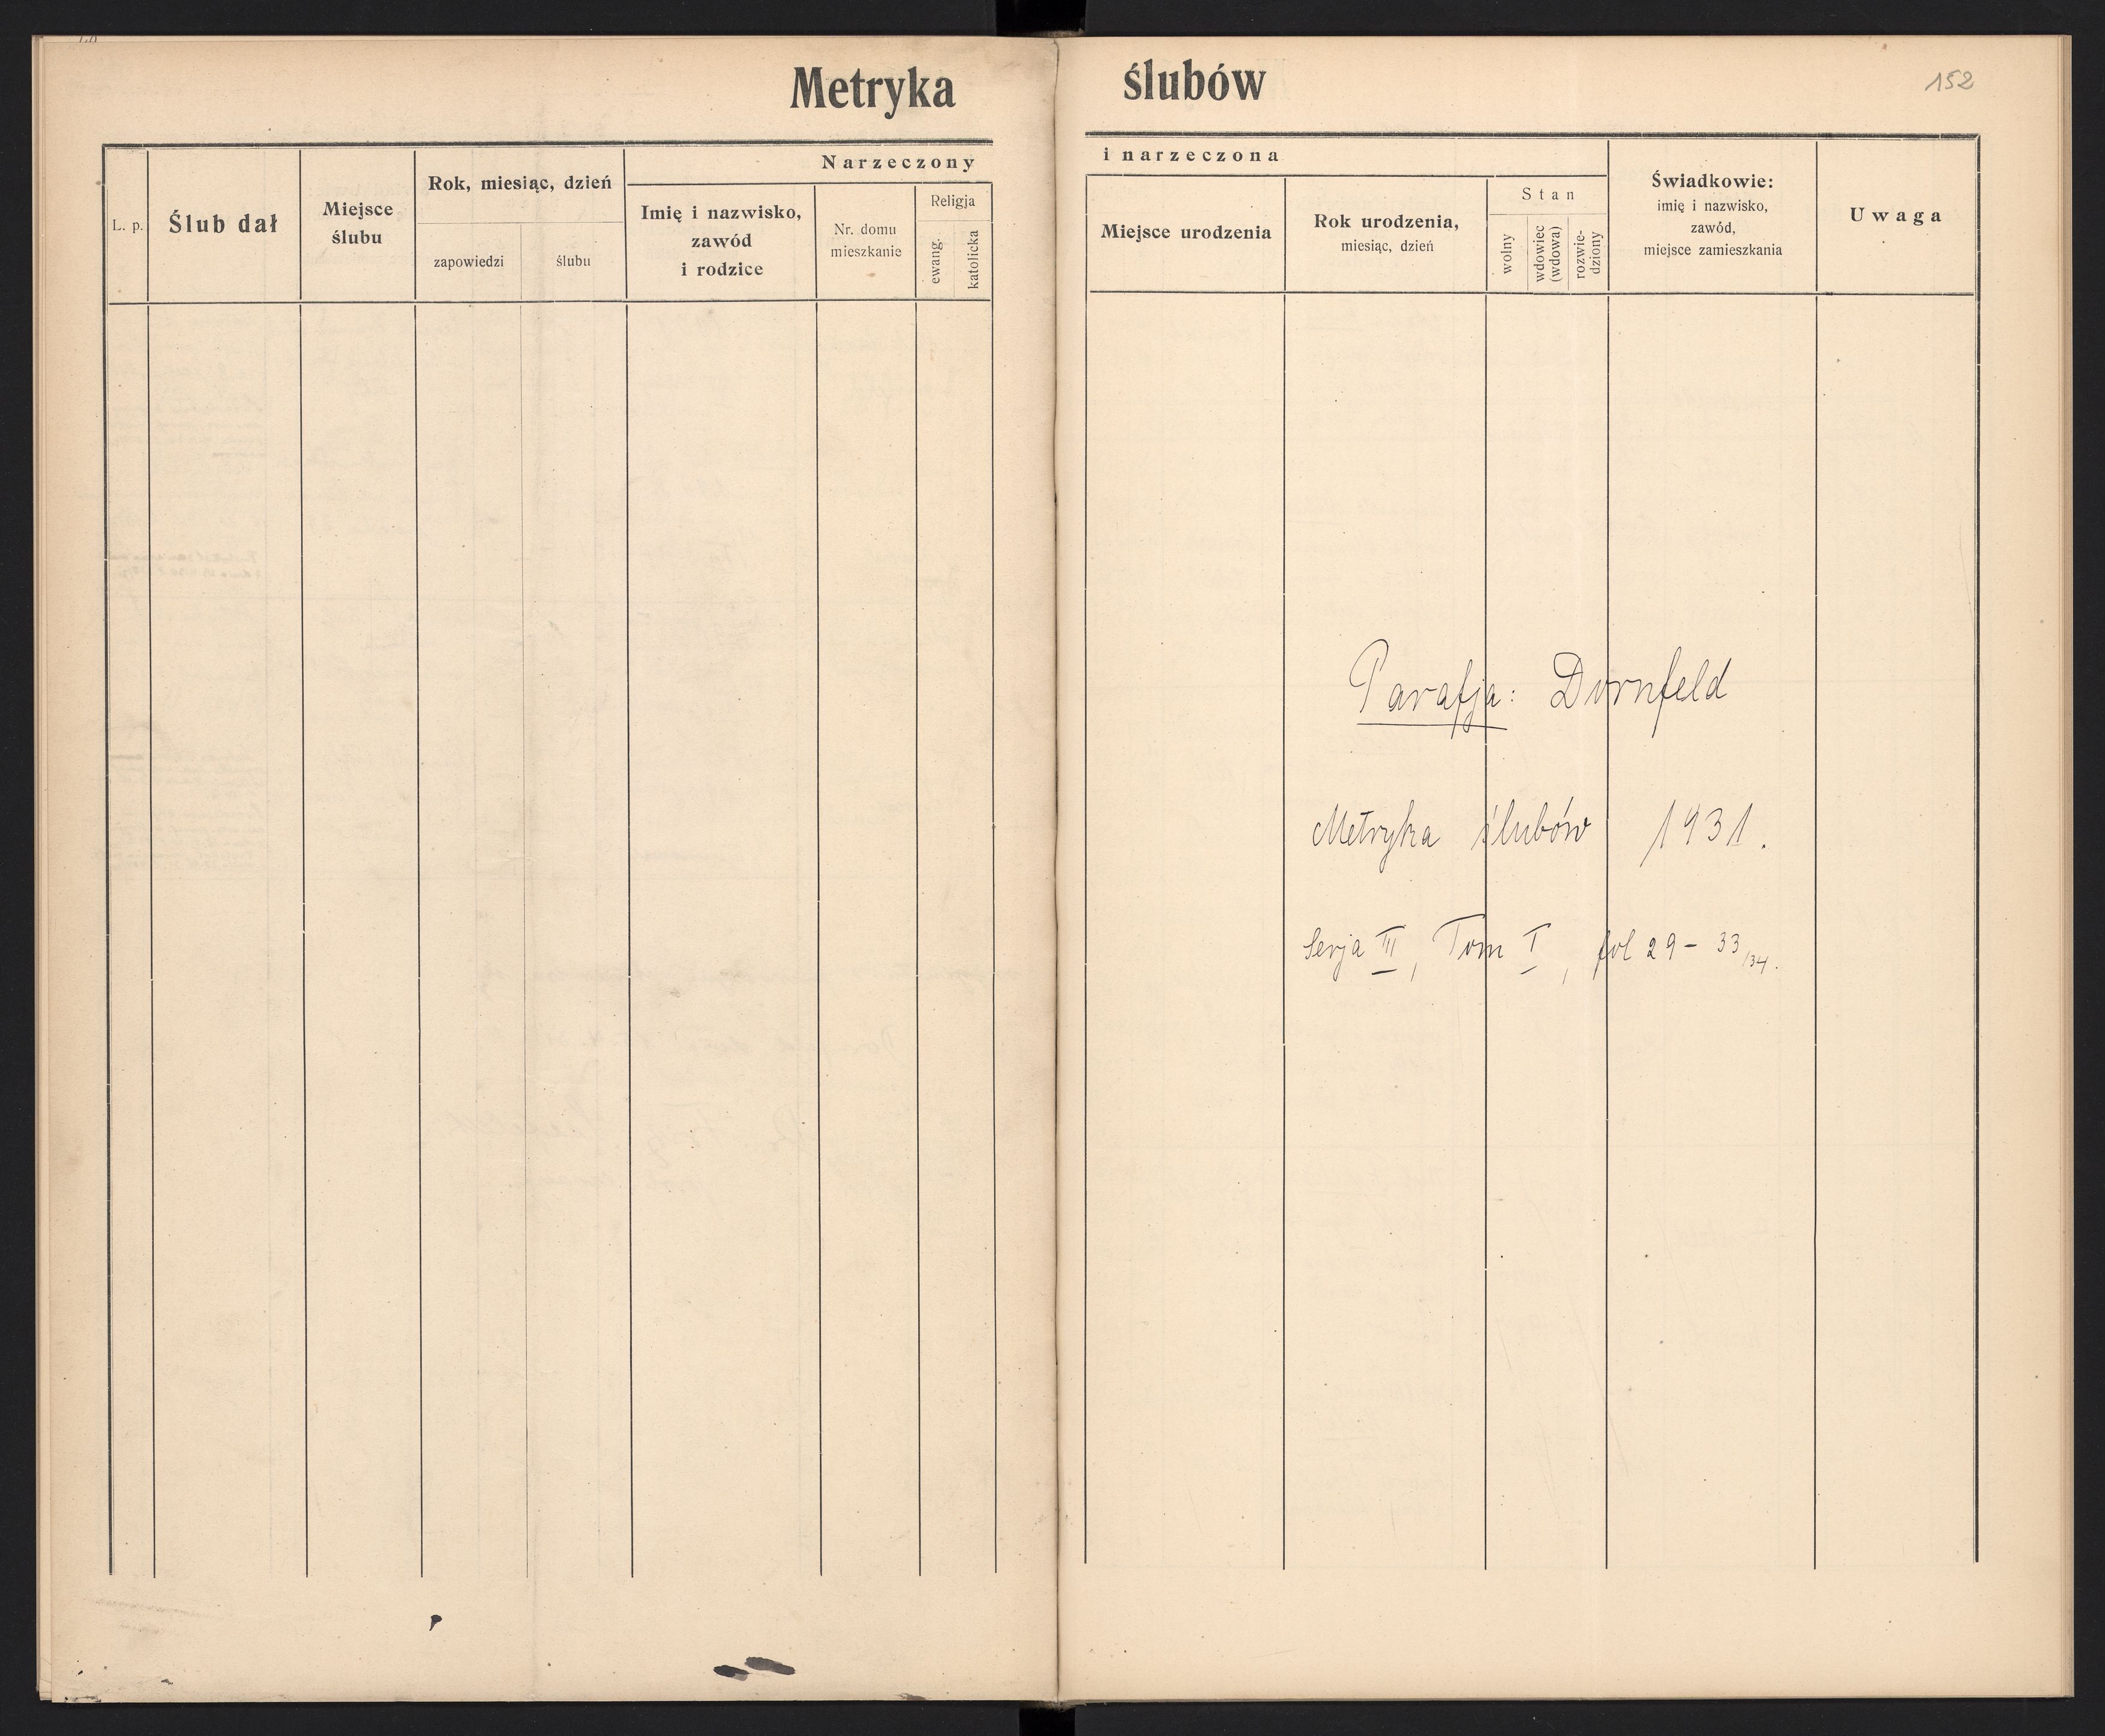 Metryka ślubów
152
L. p.
Ślub dał
Miejsce
ślubu
Rok, miesiąc, dzień
zapowiedzi
ślubu
Narzeczony
Imię i nazwisko,
zawód
i rodzice
Nr. domu
mieszkanie
Religja
ewang.
katolicka
i narzeczona
Miejsce urodzenia
Rok urodzenia,
miesiąc, dzień
Stan
wolny
wdowiec
(wdowa)
rozwie-
dziony
Świadkowie:
imię i nazwisko,
zawód,
miejsce zamieszkania
Uwaga
Parafja: Dornfeld
Metryka ślubów 1931.
Serja III, Tom I, fol 29 - 33/34.